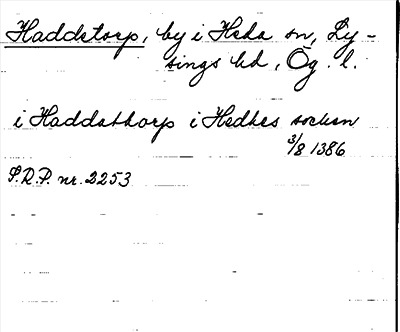 Haddstorp, by i Heda sn, Ly-
sings hd, Ög. l.
i Haddathorp i Hedhes socken
3/8 1386
S.R.P. nr. 2253